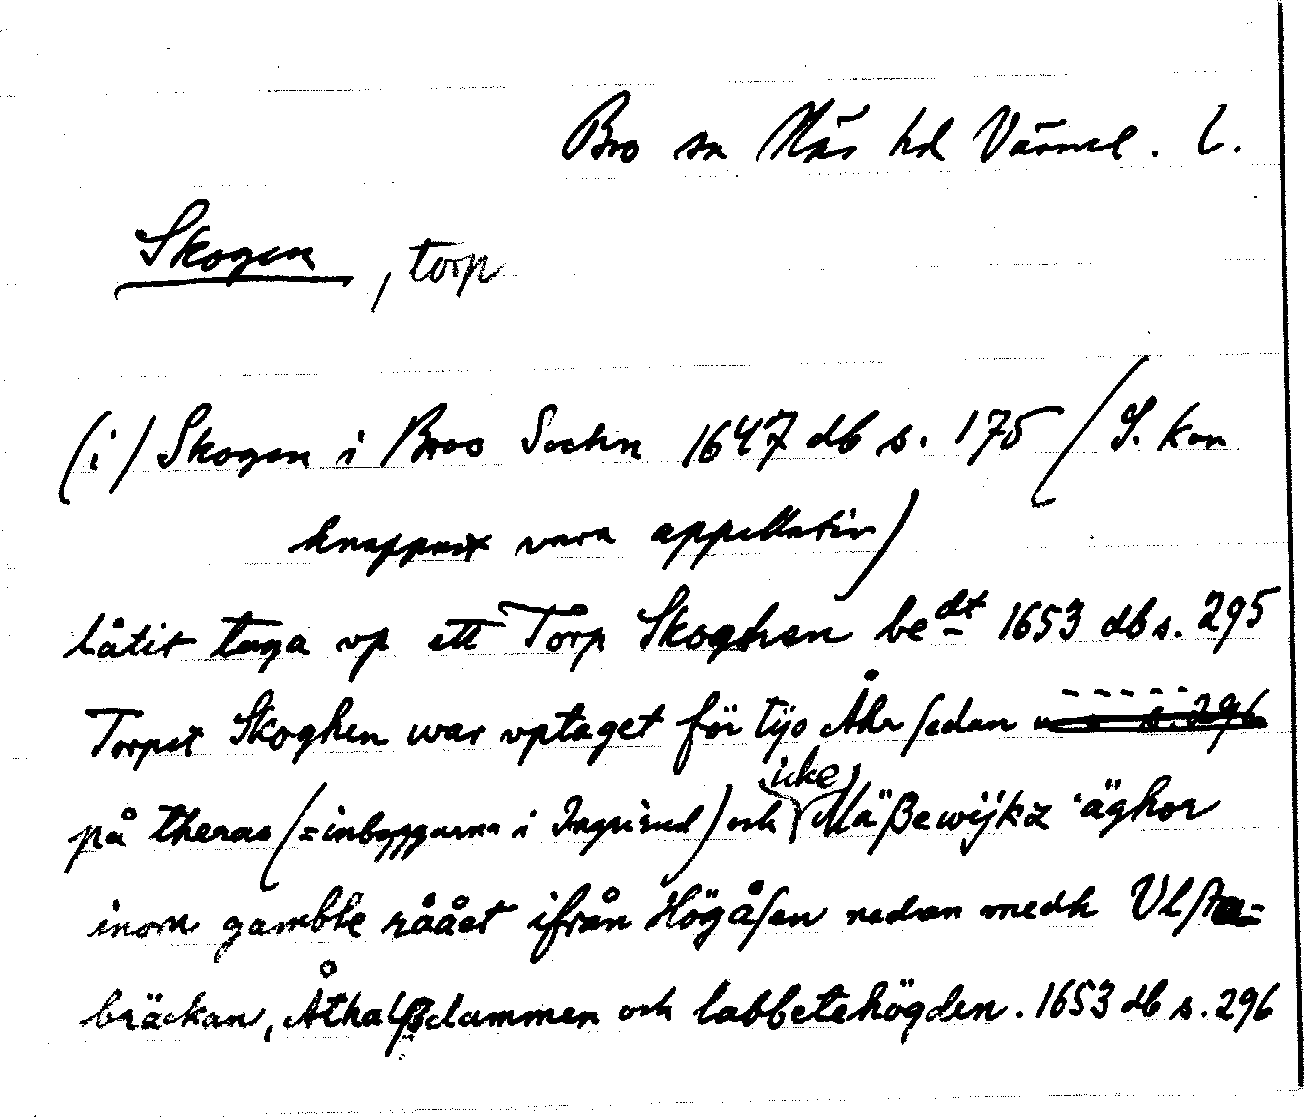 Bro sn Näs hd Värml. l.
Skogen, torp
(i) Skogen i Broo Sochn 1647 db s. 175 (S. kan
knappast vara appellativ)
låtit taga vp ett Torp Skoghen bedt 1653 db s. 295
Torpet Skoghen war vptaget för tijo Åhr sedan
på theras (= inbyggarna i Ingrirud) och icke Mäßewijkz äghor
inom gamble råået ifrån Högåsen nedan medh Vlsta-
bräckan, Åthalßdammen och labbetehögden. 1653 db s. 296